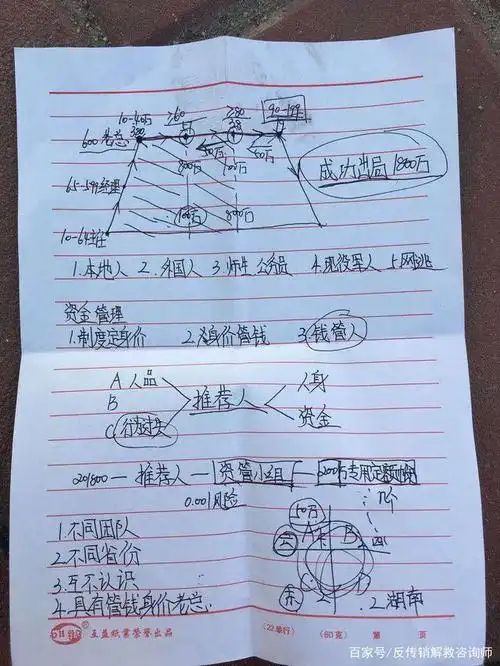 10-40万 ≥60 ≥80 90-199
600老总 50万 50万
800万 成功出局1800万
65-599经理
100万 800万
10-64主任
1.本地人 2.外国人 3.师生.公务员 4.现役军人 5.网逃
资金管理
1.制度定身价 2.身价管钱 3.钱管人
A 人品 人身
B 推荐人
C 行为过失 资金
201800—推荐人—资管小组—200万专用定额
0.001风险 几个
1.不同团队 50万
2.不同省份 A B
3.互不认识 C D
4.具有管钱身价老总 2湖南
互益纸业荣誉出品 (22单行) (60克) 第 页
百家号/反传销解教咨询师